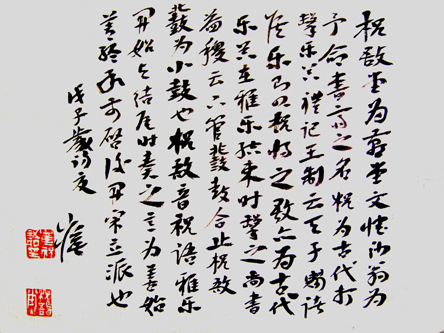 柷敔堂为文怀沙翁为
予命书斋之名柷为古代打
击乐器礼记王制云天子赐诸
侯乐则以柷将之敔亦为古代
乐器在雅乐结束时击之尚书
益稷云下管鼗鼓合止柷敔
鼗为小鼓也柷敔音祝语雅乐
开始与结尾时奏之言为善始
善终承前启后开宗立派也
戊子岁